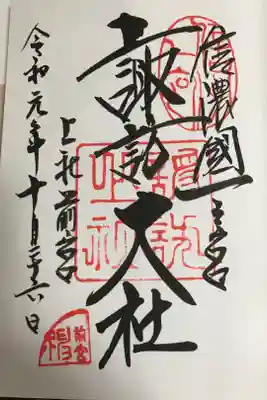 信濃國一之宮
諏訪大社
上社前宮
令和元年十月二十六日